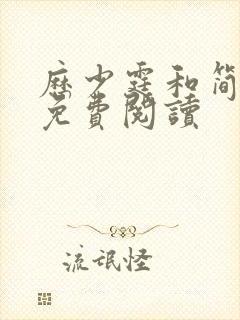 歷少霆和簡
免費閱讀
流氓怪